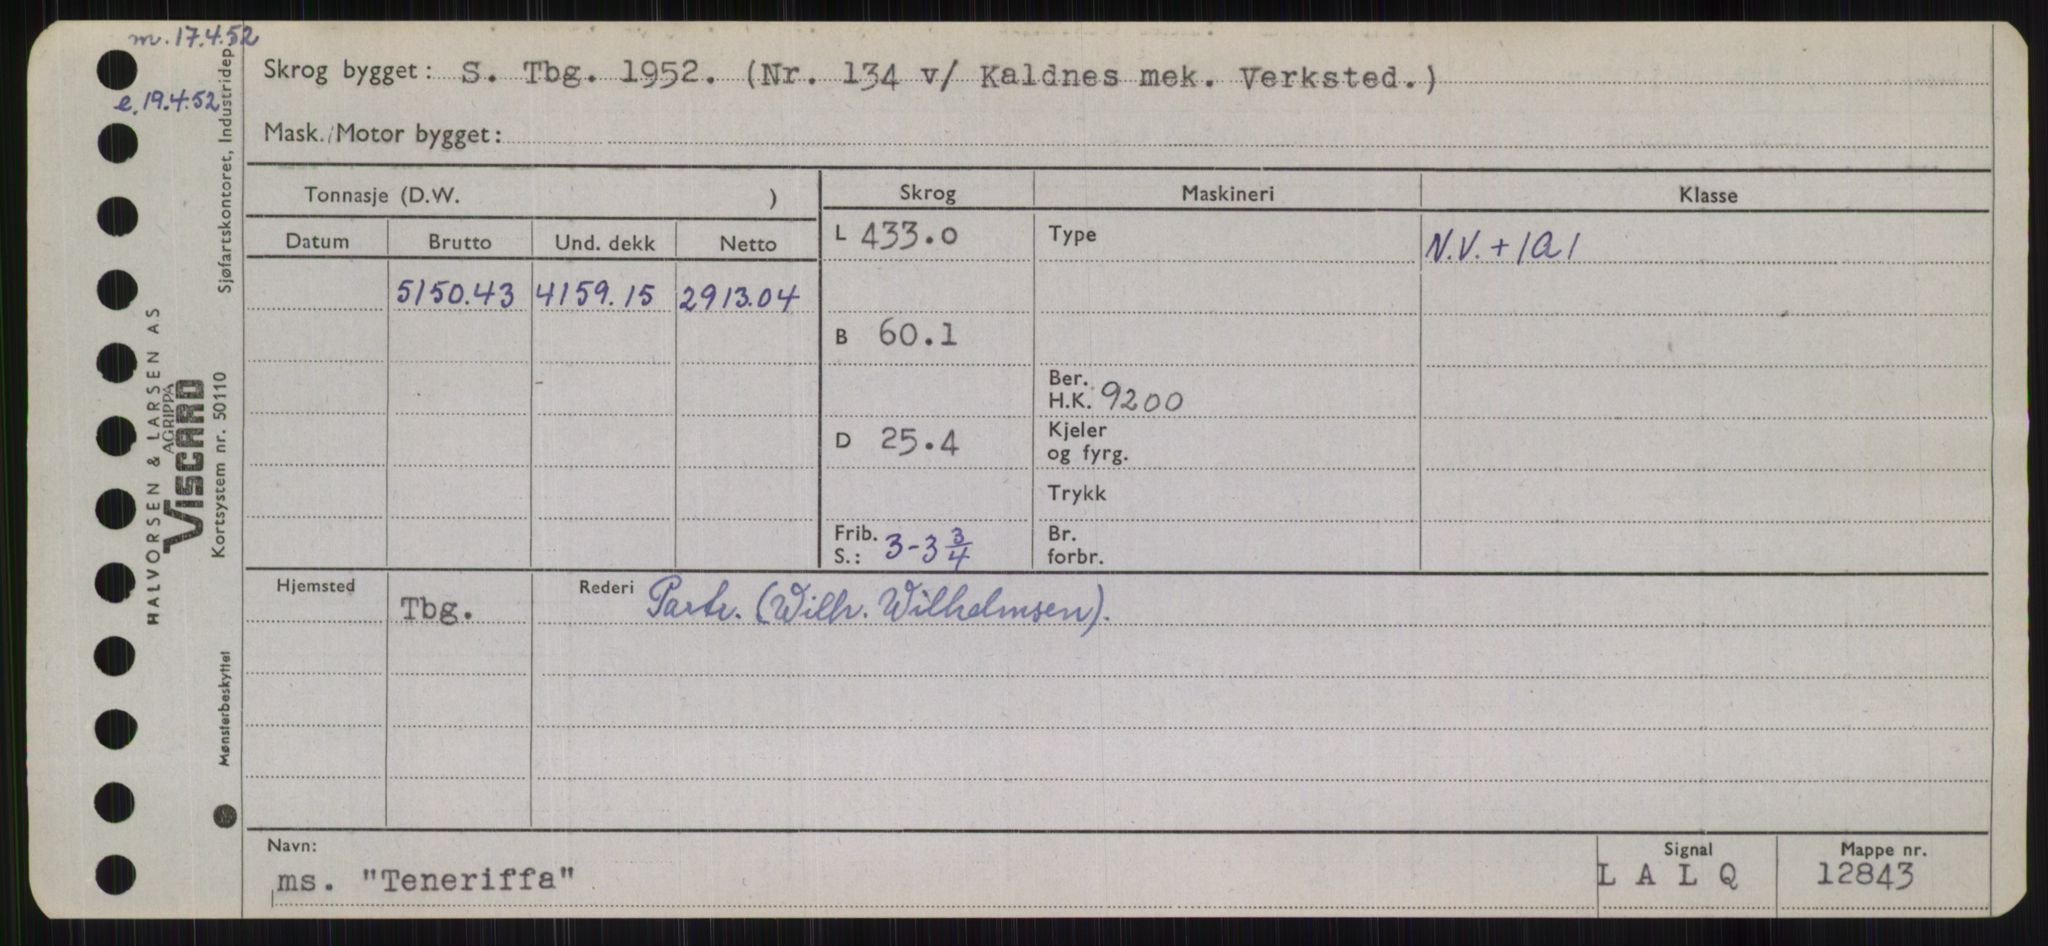 m. 17.4.52
e. 19.4.52
Skrog bygget: S. Tbg. 1952. (Nr. 134 v/ Kaldnes mek. Verksted.)
Mask./Motor bygget:
Tonnasje (D.W. )
Skrog Maskineri Klasse
Datum Brutto Und. dekk Netto
L 433.0 Type N.V. + 1A1
5150.43 4159.15 2913.04
B 60.1
Ber.
H.K. 9200
D 25.4 Kjeler
og fyrg.
Trykk
Frib.
S.: 3-3 3/4 Br.
forbr.
Hjemsted Tbg. Rederi Partr. (Wilh. Wilhelmsen).
Navn: Signal Mappe nr.
ms. "Teneriffa" L A L Q 12843
Sjøfartskontoret, Industridep
Kortsystem nr. 50110
Mønsterbeskyttet
HALVORSEN & LARSEN AS
AGRIPPA
VISCARD